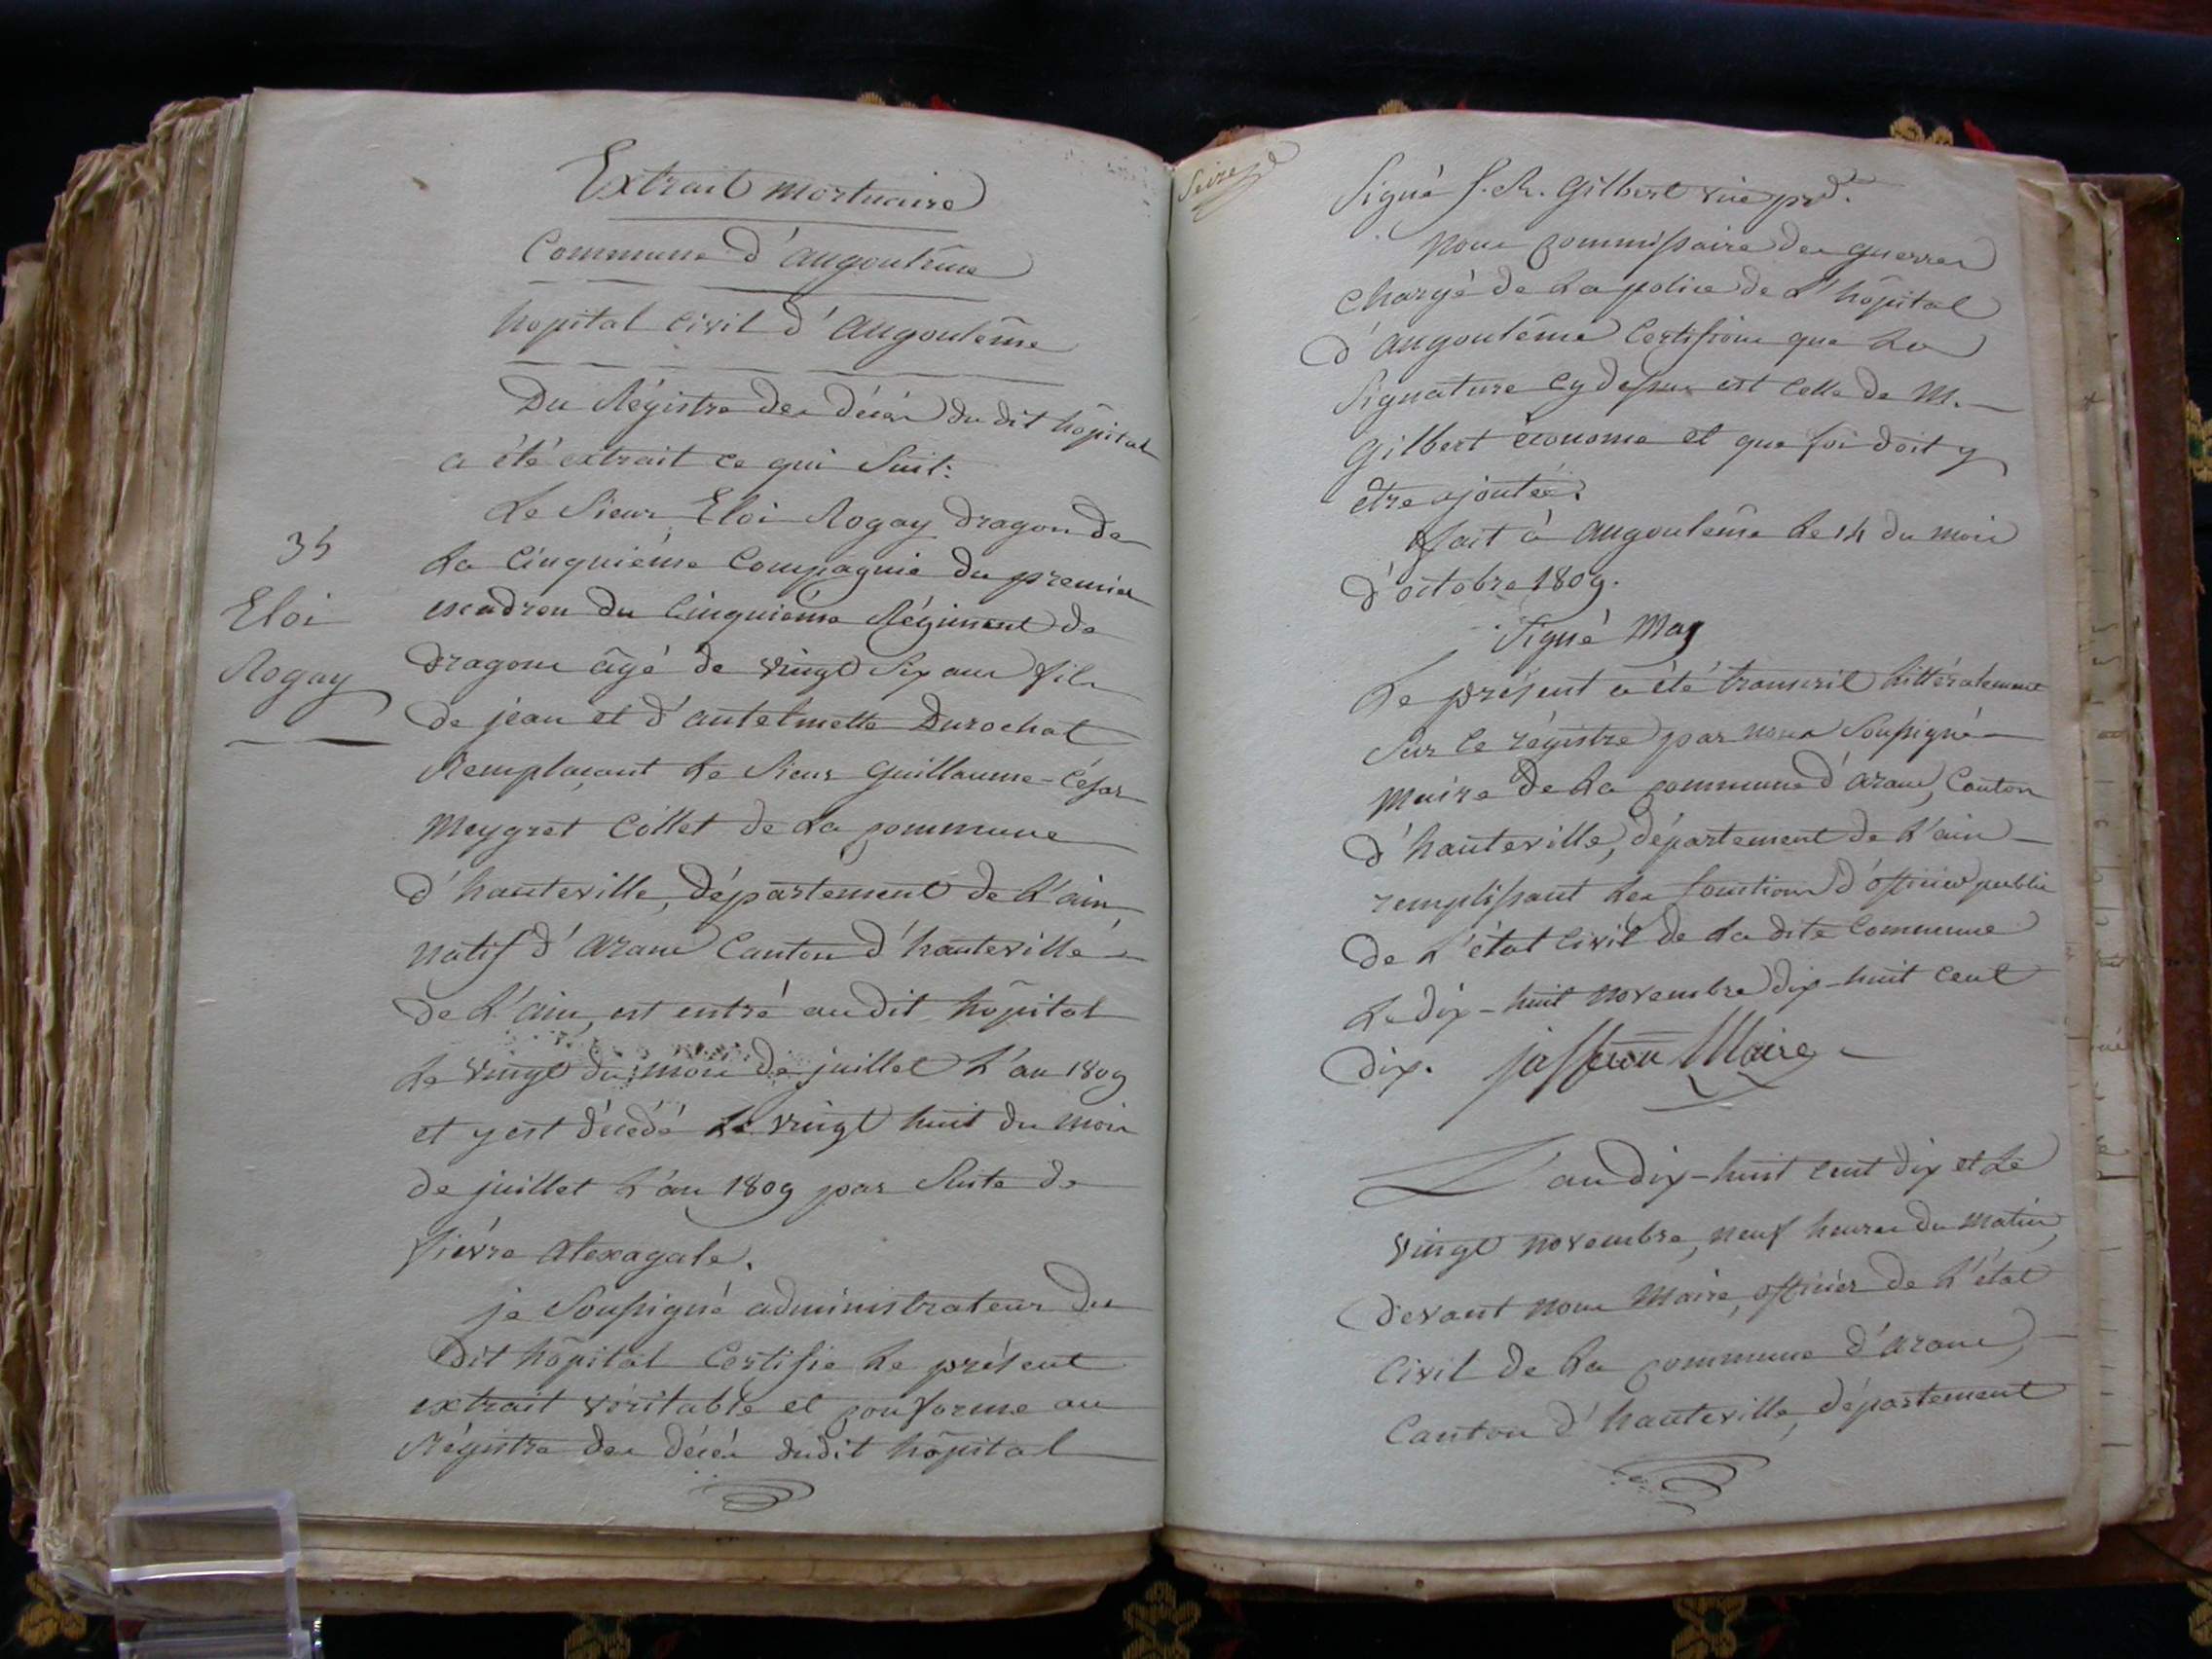 Extrait mortuaire
Commune d'angoulême
hôpital civil d'angoulême
Du Régistre des décès du dit hôpital
a été extrait ce qui Suit:
Le Sieur Eloi Rogay dragon de
La Cinquième Compagnie du premier
escadron du Cinquième Régiment de
35
Eloi
Rogay
dragons âgé de vingt Six ans fils
de jean et d'antelmette Durochat
Remplaçant Le Sieur guillaume-César
Meygret Collet de La commune
d'hauteville, département de L'ain,
natif d'aranc Canton d'hauteville
de L'ain, est entré audit hôpital
Le vingt du mois de juillet L'an 1809
et y est décédé Le vingt huit du mois
de juillet L'an 1809 par Suite de
fièvre
je Soussigné administrateur du
dit hôpital Certifie Le présent
extrait véritable et conforme au
Régistre des décès dudit hôpital
Seize
Signé gilbert
Nous commissaire des guerres
chargé de La police de L'hôpital
d'angoulême Certifions que La
Signature cy dessus est celle de M.
gilbert économe et que foi doit y
être ajoutée.
fait à angoulême Le 14 du mois
d'octobre 1809.
Signé
Le présent a été transcrit Littéralement
Sur le régistre par nous Soussigné
Maire de La commune d'aranc, Canton
d'hauteville, département de L'ain
remplissant Les fonctions d'officier public
de L'état civil de La dite Commune
Le dix-huit novembre dix-huit cent
dix. Maire
L'an dix-huit cent dix et Le
vingt novembre, neuf heures du matin,
devant nous Maire, officier de L'état
Civil de La commune d'aranc,
Canton d'hauteville, département